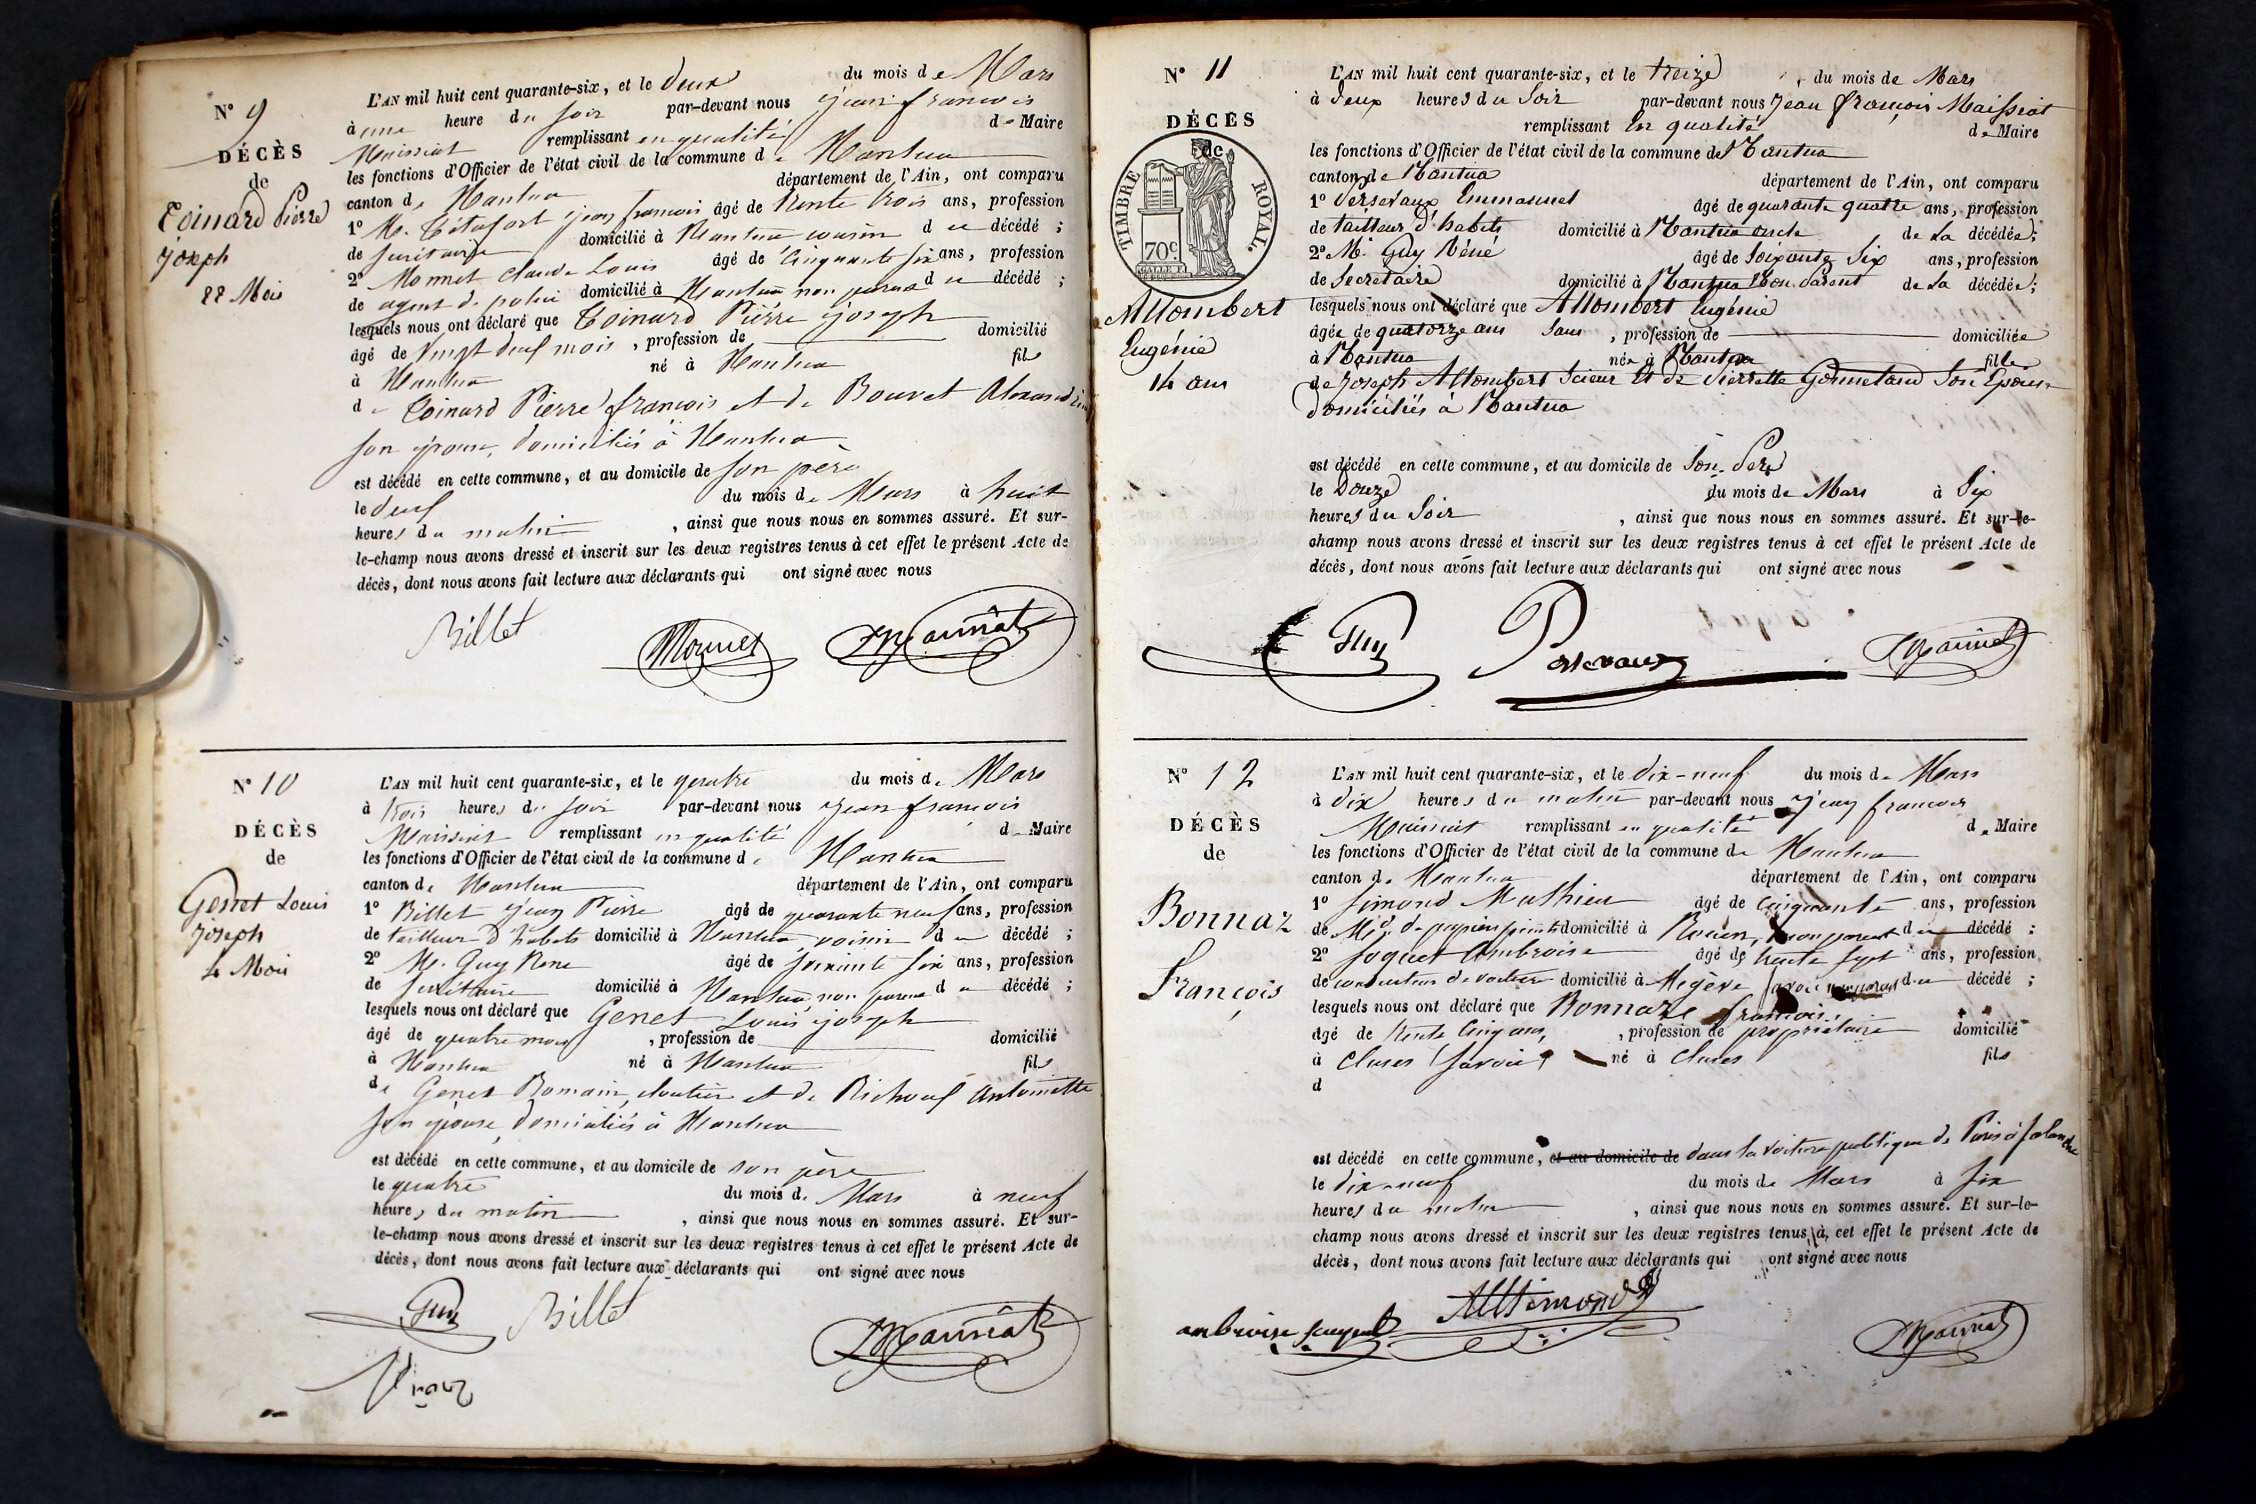 N° 9
DÉCÈS
de
Coinard Pierre
Joseph
22 Mois
L'AN mil huit cent quarante-six, et le deux du mois de Mars
à une heure du soir par-devant nous jean françois
Maissiat remplissant en qualité de Maire
les fonctions d'Officier de l'état civil de la commune de Nantua
canton de Nantua département de l'Ain, ont comparu
1° M. jean francois âgé de trente trois ans, profession
de secrétaire domicilié à Nantua cousin du décédé ;
2° Monnet Claude Louis âgé de cinquante six ans, profession
de agent de police domicilié à Nantua non parent du décédé ;
lesquels nous ont déclaré que Coinard Pierre joseph
âgé de vingt deux mois, profession de domicilié
à Nantua né à Nantua fils
de Coinard Pierre françois et de Bouvet Alexandrine
son épouse, domiciliés à Nantua
est décédé en cette commune, et au domicile de son père
le deux du mois de Mars à huit
heures du matin, ainsi que nous nous en sommes assuré. Et sur-
le-champ nous avons dressé et inscrit sur les deux registres tenus à cet effet le présent Acte de
décès, dont nous avons fait lecture aux déclarants qui ont signé avec nous
Billet Monnet Maissiat
N° 10
DÉCÈS
de
Genet Louis
Joseph
4 Mois
L'AN mil huit cent quarante-six, et le quatre du mois de Mars
à trois heures du soir par-devant nous jean françois
Maissiat remplissant en qualité de Maire
les fonctions d'Officier de l'état civil de la commune de Nantua
canton de Nantua département de l'Ain, ont comparu
1° Billet jean Pierre âgé de quarante neuf ans, profession
de tailleur d'habits domicilié à Nantua, voisin du décédé ;
2° M. Guy Rene âgé de soixante six ans, profession
de secrétaire domicilié à Nantua, non parent du décédé ;
lesquels nous ont déclaré que Genet Louis joseph
âgé de quatre mois, profession de domicilié
à Nantua né à Nantua fils
de Genet Romain, cloutier et de Richouf Antoinette
son épouse, domiciliés à Nantua
est décédé en cette commune, et au domicile de son père
le quatre du mois de Mars à neuf
heures du matin, ainsi que nous nous en sommes assuré. Et sur-
le-champ nous avons dressé et inscrit sur les deux registres tenus à cet effet le présent Acte de
décès, dont nous avons fait lecture aux déclarants qui ont signé avec nous
Guy Billet Maissiat
N° 11
DÉCÈS
de
TIMBRE ROYAL
70c
Allombert
Eugénie
14 ans
L'AN mil huit cent quarante-six, et le treize, du mois de Mars
à deux heures du Soir par-devant nous Jean françois Maissiat
remplissant En qualité de Maire
les fonctions d'Officier de l'état civil de la commune de Nantua
canton de Nantua département de l'Ain, ont comparu
1° Persevaux Emmanuel âgé de quarante quatre ans, profession
de tailleur d'habits domicilié à Nantua oncle de La décédée;
2° M. Guy Réné âgé de Soixante Six ans, profession
de Secretaire domicilié à Nantua Non Parent de La décédée;
lesquels nous ont déclaré que Allombert Eugénie
âgée de quatorze ans Sans, profession de domiciliée
à Nantua née à Nantua fille
de Joseph Allombert Scieur Et de Pierrette Gonnetand Son Epouse
domiciliés à Nantua
est décédé en cette commune, et au domicile de Son Pere
le Douze du mois de Mars à Six
heures du Soir, ainsi que nous nous en sommes assuré. Et sur-le-
champ nous avons dressé et inscrit sur les deux registres tenus à cet effet le présent Acte de
décès, dont nous avons fait lecture aux déclarants qui ont signé avec nous
Guy Persevaux Maissiat
N° 12
DÉCÈS
de
Bonnaz
François
L'AN mil huit cent quarante-six, et le dix-neuf du mois de Mars
à dix heures du matin par-devant nous jean francois
Maissiat remplissant en qualité de Maire
les fonctions d'Officier de l'état civil de la commune de Nantua
canton de Nantua département de l'Ain, ont comparu
1° Simond Mathieu âgé de cinquante ans, profession
de Md. de papiers peints domicilié à Rouen, non parent du décédé ;
2° Soquet Ambroise âgé de trente sept ans, profession
de conducteur de voiture domicilié à Megève Savoie non parent du décédé ;
lesquels nous ont déclaré que Bonnaze françois
âgé de trente cinq ans, profession de propriétaire domicilié
à Cluses (Savoie) né à Cluses fils
d
est décédé en cette commune, et au domicile de dans la voiture publique de Paris à
le dix-neuf du mois de Mars à six
heures du matin, ainsi que nous nous en sommes assuré. Et sur-le-
champ nous avons dressé et inscrit sur les deux registres tenus à cet effet le présent Acte de
décès, dont nous avons fait lecture aux déclarants qui ont signé avec nous
ambroise Simond Maissiat